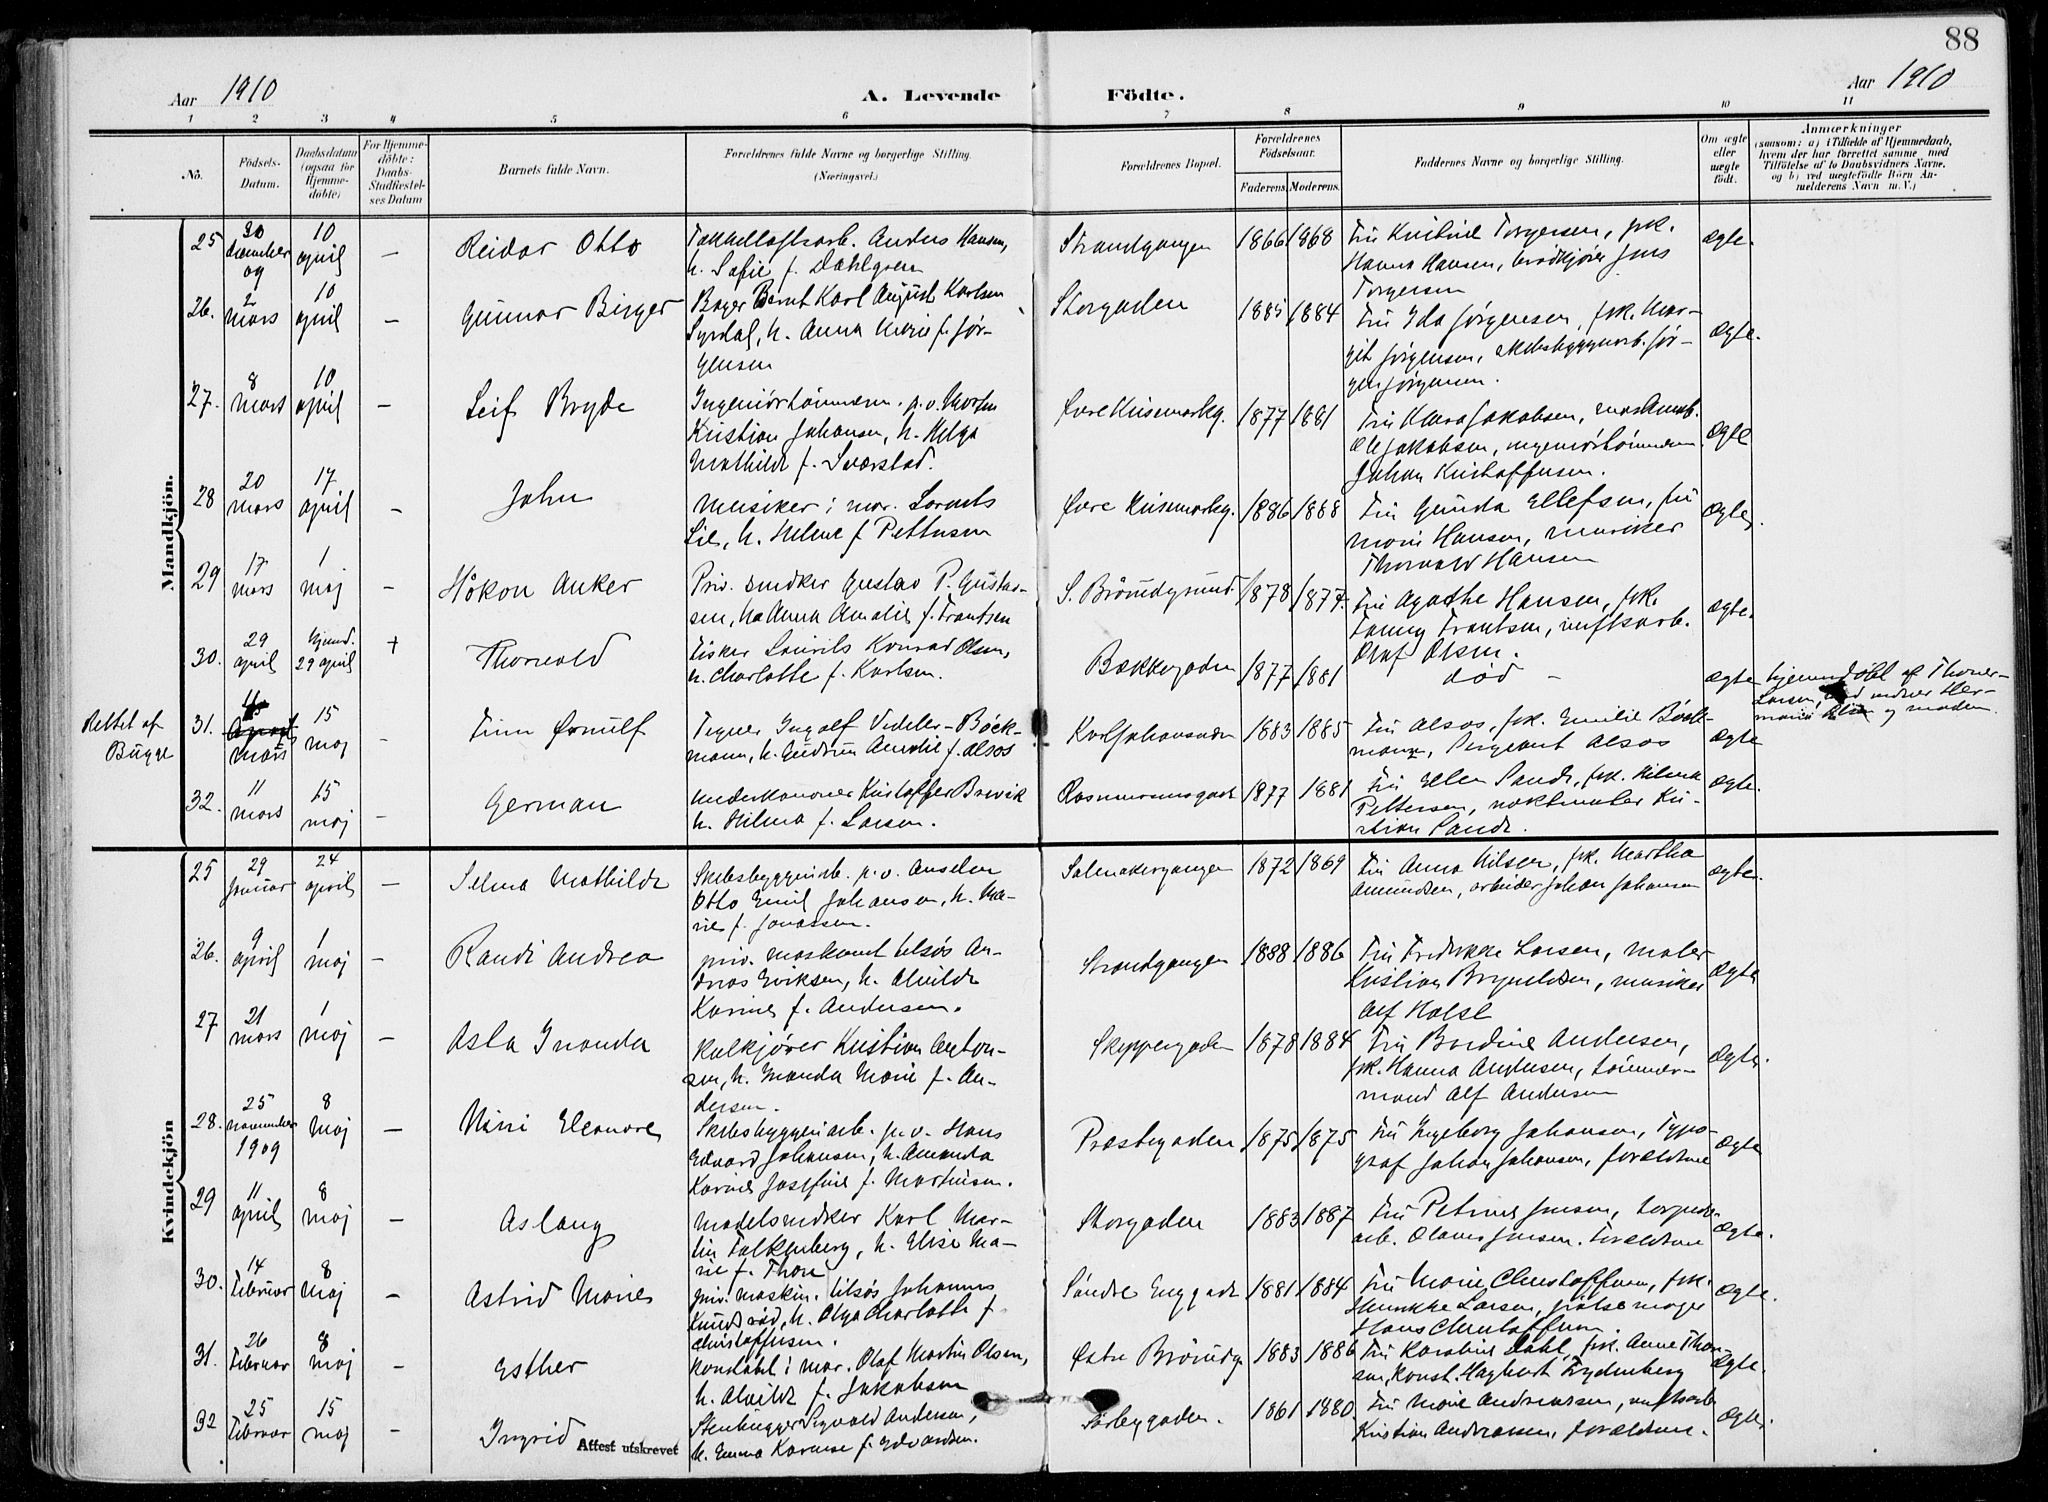 88
Aar 1910
A. Levende Födte.
Aar 1910
1 2 3 4 5 6 7 8 9 10 11
No.
Födsels-Datum.
Daabsdatum (ogsaa for Hjemme-döbte)
For Hjemme-döbte: Daabs-Stadfæstel-ses Datum
Barnets fulde Navn.
Forældrenes fulde Navne og borgerlige Stilling. (Næringsvei.)
Forældrenes Bopæl.
Forældrenes Födselsaar.
Faderens. Moderens.
Faddernes Navne og borgerlige Stilling.
Om ægte eller uægte födt.
Anmærkninger
(saasom: a) i Tilfælde af Hjemmedaab, hvem der har forrettet samme med Tilföielse af to Daabsvidners Navne, og b) ved uægtefödte Börn An-melderens Navn m.V.)
Mandkjön.
25 30 december 09 10 april — Reidar Otto
Anders Hansen,
h. Sofie f. Dahlgren
Strandgangen 1866 1868
Fru Kristine Torgersen, frk.
Hanna Hansen, brødkjører Jens
Torgersen
ægte.
26. 2 mars 10 april — Gunnar Birger
Bager Bernt Karl August Karlsen
Syrdal, h. Anna Marie f. Jør-
gensen
Storgaden 1885 1884
Fru Ida Jørgensen, frk. Mar-
git Jørgensen, skibsbyggerarb. Jør-
gen Jørgensen.
ægte.
27. 8 mars 10 april — Leif Bryde
Ingeniørtømmerm. p.v. Morten
Kristian Johansen, h. Helga
Mathilde f. Sværstad.
1877 1881
Fru Klara Jakobsen,
Ole Jakobsen, ingeniørtømmerm
Johan Kristoffersen.
ægte
28 20 mars 17 april — John
Musiker i mar. Laurits
Lie, h. Helene f. Pettersen
1886 1888
Fru Gunda Ellefsen, fru
Marie Hansen, musiker
Thorvald Hansen
ægte
29 17 mars 1 maj — Håkon Anker
Priv. snedker Gustav P. Gustav-
sen, h. Anna Amalie f. Frantsen
1878 1877.
Fru Agathe Hansen, frk.
Fanny Frantsen, verftsarb.
Olaf Olsen.
ægte.
30. 29 april hjemd. 29 april + Thorvald
Fisker Laurits Konrad Olsen,
h. Charlotte f. Karlsen.
Bakkegaden 1877 1881
død —
ægte
hjemmedøbt af
og moderen.
Rettet af Bugge
31. mars 15 maj — Finn Ørnulf
Tegner Ingolf Vedeler-Böck-
mann, h. Gudrun Amalie f. Alsos
1883 1885
Fru Alsos, frk. Emilie Böck-
mann, Sergeant Alsos
ægte
32. 11 mars 15 maj — German
Underkanoner Kristoffer Brevik
h. Hilma f. Larsen.
Rasmussensgade 1877 1881
Fru Ellen Sande, frk. Hilma
Pettersen, Kri-
stian Sande.
ægte.
Kvindekjön
25 29 januar 24 april — Selma Mathilde
Skibsbyggeriarb. p.v. Anselm
Otto Emil Johansen, h. Ma-
rie f. Jonassen.
Salmakergangen 1872 1869
Fru Anna Nilsen, frk. Martha
Amundsen, arbeider Johan Johansen
ægte.
26. 9 april 1 maj — Randi Andrea
priv. maskinist tilsøs An-
dreas Eriksen, h. Alvilde
Karine f. Andersen.
Strandgangen 1888 1886
Fru Fredrikke Larsen, maler
Kristian Brynildsen, musiker
Alf Holst
ægte
27 21 mars 1 maj — Asta Iranda
Kulkjører Kristian Anton-
sen, h. Iranda Marie f. An-
dersen.
Skippergaden 1878 1884
Fru Berdine Andersen,
frk. Hanna Andersen, tømmer-
mand Alf Andersen
ægte.
28. 25 november 1909 8 maj — Nini Eleonore
Skibsbyggeriarb. p.v. Hans
Edvard Johansen, h. Amanda
Karine Josefine f. Martinsen.
Præstegaden 1875 1875
Fru Ingeborg Johansen, Typo-
graf Johan Johansen, forældrene
ægte
29 11 april 8 maj — Aslaug
Modelsnedker Karl Mar-
tin Falkenberg, h. Elise Ma-
rie f. Thore
Storgaden 1883 1887
Fru Petrine Jensen, torpedo-
arb. Olaves Jensen. Forældrene
ægte.
30. 14 Februar 8 maj — Astrid Marie
priv. maskin. tilsøs Johannes
Knudsrød, h. Olga Charlotte f.
Christoffersen.
Søndre Enggade 1881 1884
Fru Marie Christoffersen, frk.
Henrikke Larsen, pølsemager
Hans Christoffersen
ægte.
31. 26 Februar 8 maj — Esther
Konstabel i mar. Olaf Martin Olsen,
h. Alvilde f. Jakobsen
1883 1886
Fru Karoline Dahl, frk. Anne Thor-
sen, Konst. Hagbart Frydenberg
ægte.
32 25 Februar 15 maj — Ingrid
Attest utskrevet
Stenhugger Sigvald Andersen,
h. Emma Karense f. Edvardsen.
Sørbygaden. 1861 1880.
Fru Marie Andreassen, verftsarb
Kristian Andreassen, forældrene.
ægte.